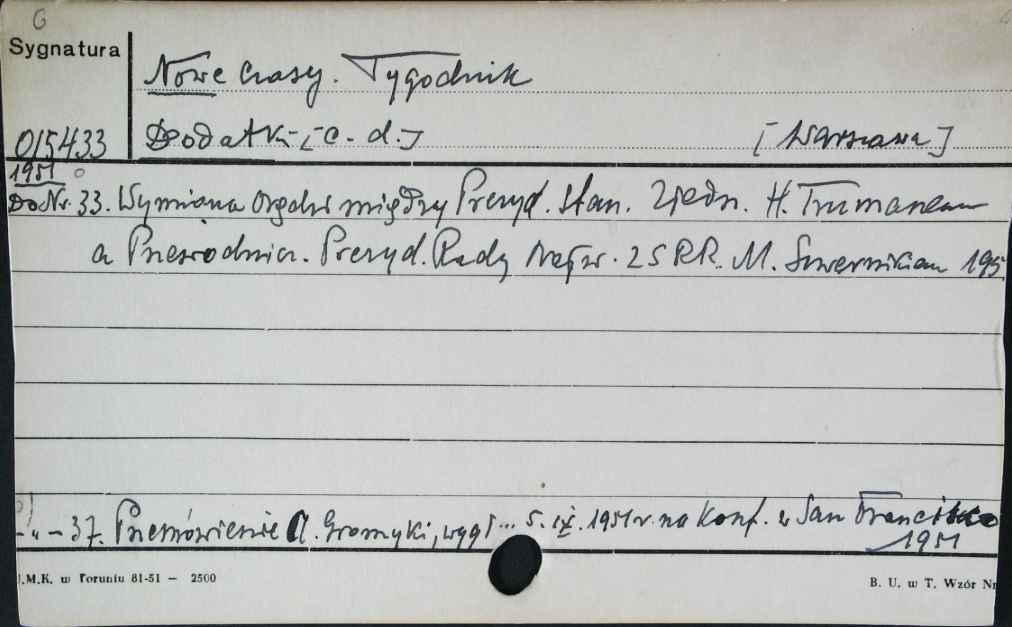 G
Sygnatura
Nowe Czasy. Tygodnik
015433 Dodatki [c. d.] [Warszawa]
1951
Do Nr. 33. Wymiana orędzi między Prezyd. Stan. Zjedn. H. Trumanem
a Przewodnicz. Prezyd. Rady Najw. ZSRR. M. Szwernikiem 195
-„- 37. Przemówienie A. Gromyki, wygł... 5. IX. 1951 r. na Konf. w San Francisko
1951
.M.K. w Toruniu 81-51 — 2500
B. U. w T. Wzór Nr